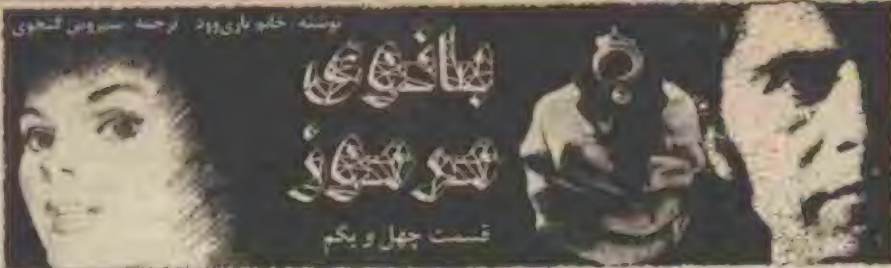 نوشته: خانم باری‌وود ترجمه: سیروس گنجوی
بانوی
مرموز
قسمت چهل و یکم